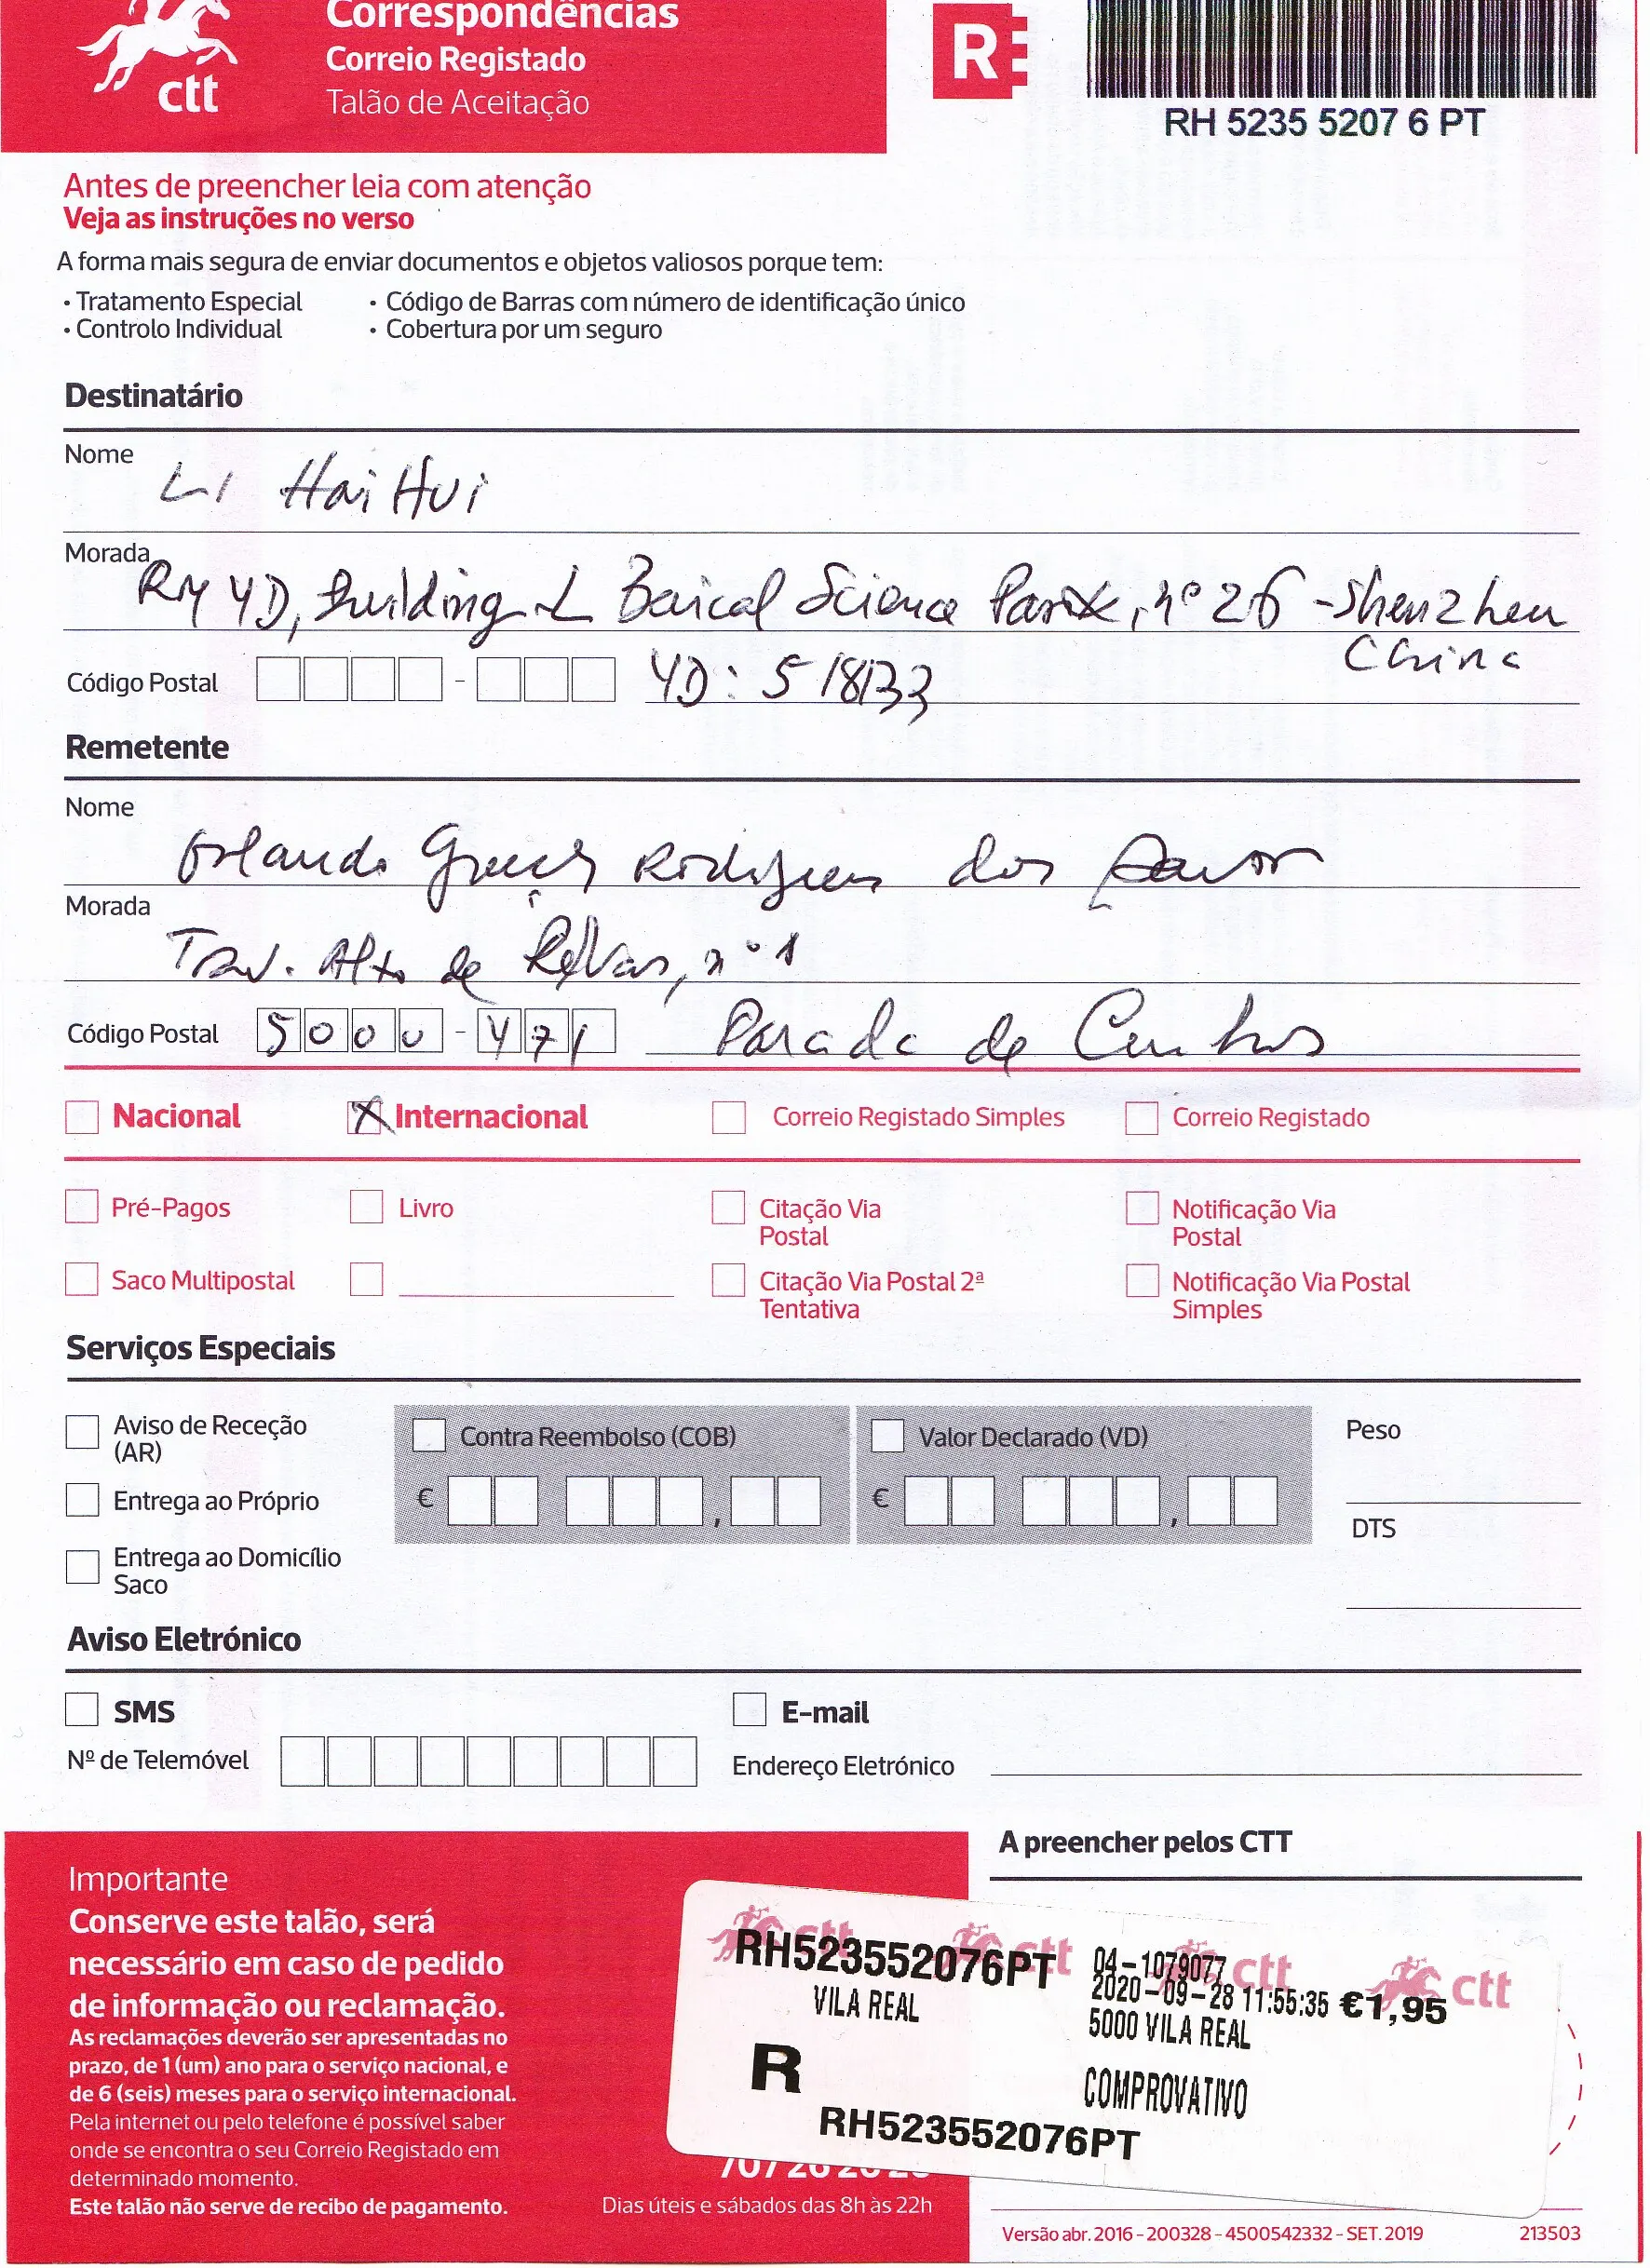 Correspondências
Correio Registado
Talão de Aceitação
ctt
R
RH 5235 5207 6 PT
Antes de preencher leia com atenção
Veja as instruções no verso
A forma mais segura de enviar documentos e objetos valiosos porque tem:
• Tratamento Especial • Código de Barras com número de identificação único
• Controlo Individual • Cobertura por um seguro
Destinatário
Nome LI Hai Hui
Morada RM 4D, Building L Baical Science Park, nº 26 - Shenzhen
China
Código Postal - 4D: 518133
Remetente
Nome Orlando Rodrigues dos
Morada Trav. Alto de nº 1
Código Postal 5000-471 Parada de Cunhos
Nacional X Internacional Correio Registado Simples Correio Registado
Pré-Pagos Livro Citação Via Postal Notificação Via Postal
Saco Multipostal Citação Via Postal 2ª Tentativa Notificação Via Postal Simples
Serviços Especiais
Aviso de Receção (AR) Contra Reembolso (COB) Valor Declarado (VD) Peso
Entrega ao Próprio € , € ,
DTS
Entrega ao Domicílio Saco
Aviso Eletrónico
SMS E-mail
Nº de Telemóvel Endereço Eletrónico
A preencher pelos CTT
Importante
Conserve este talão, será
necessário em caso de pedido
de informação ou reclamação.
As reclamações deverão ser apresentadas no
prazo, de 1 (um) ano para o serviço nacional, e
de 6 (seis) meses para o serviço internacional.
Pela internet ou pelo telefone é possível saber
onde se encontra o seu Correio Registado em
determinado momento.
Este talão não serve de recibo de pagamento.
Dias úteis e sábados das 8h às 22h
ctt ctt ctt ctt
RH523552076PT 04-1079077
VILA REAL 2020-09-28 11:55:35 €1,95
5000 VILA REAL
R COMPROVATIVO
RH523552076PT
Versão abr. 2016 - 200328 - 4500542332 - SET. 2019 213503